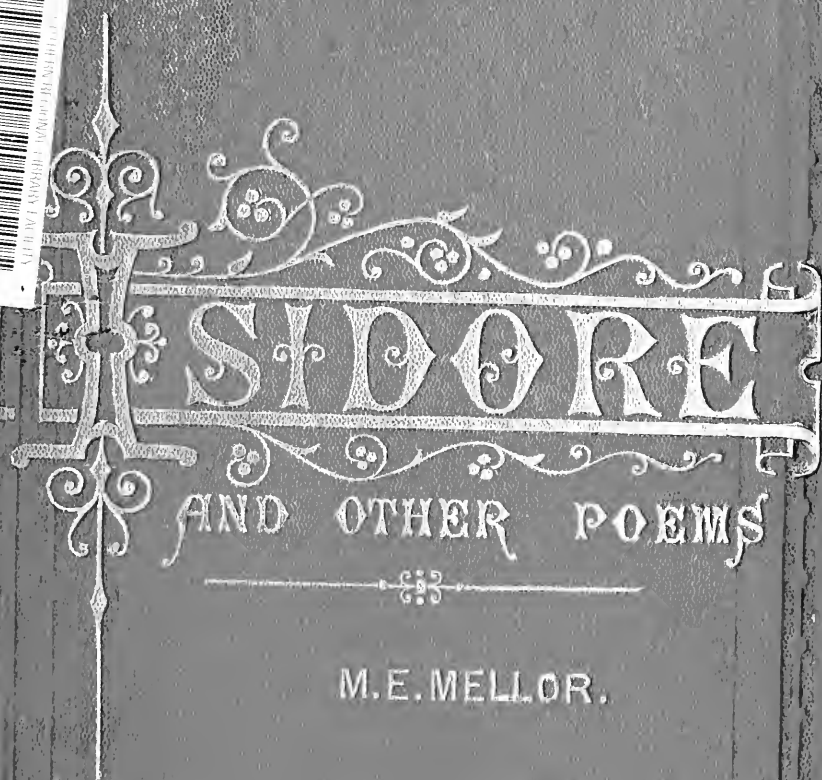 ISIDORE
AND OTHER POEMS
M.E. MELLOR.